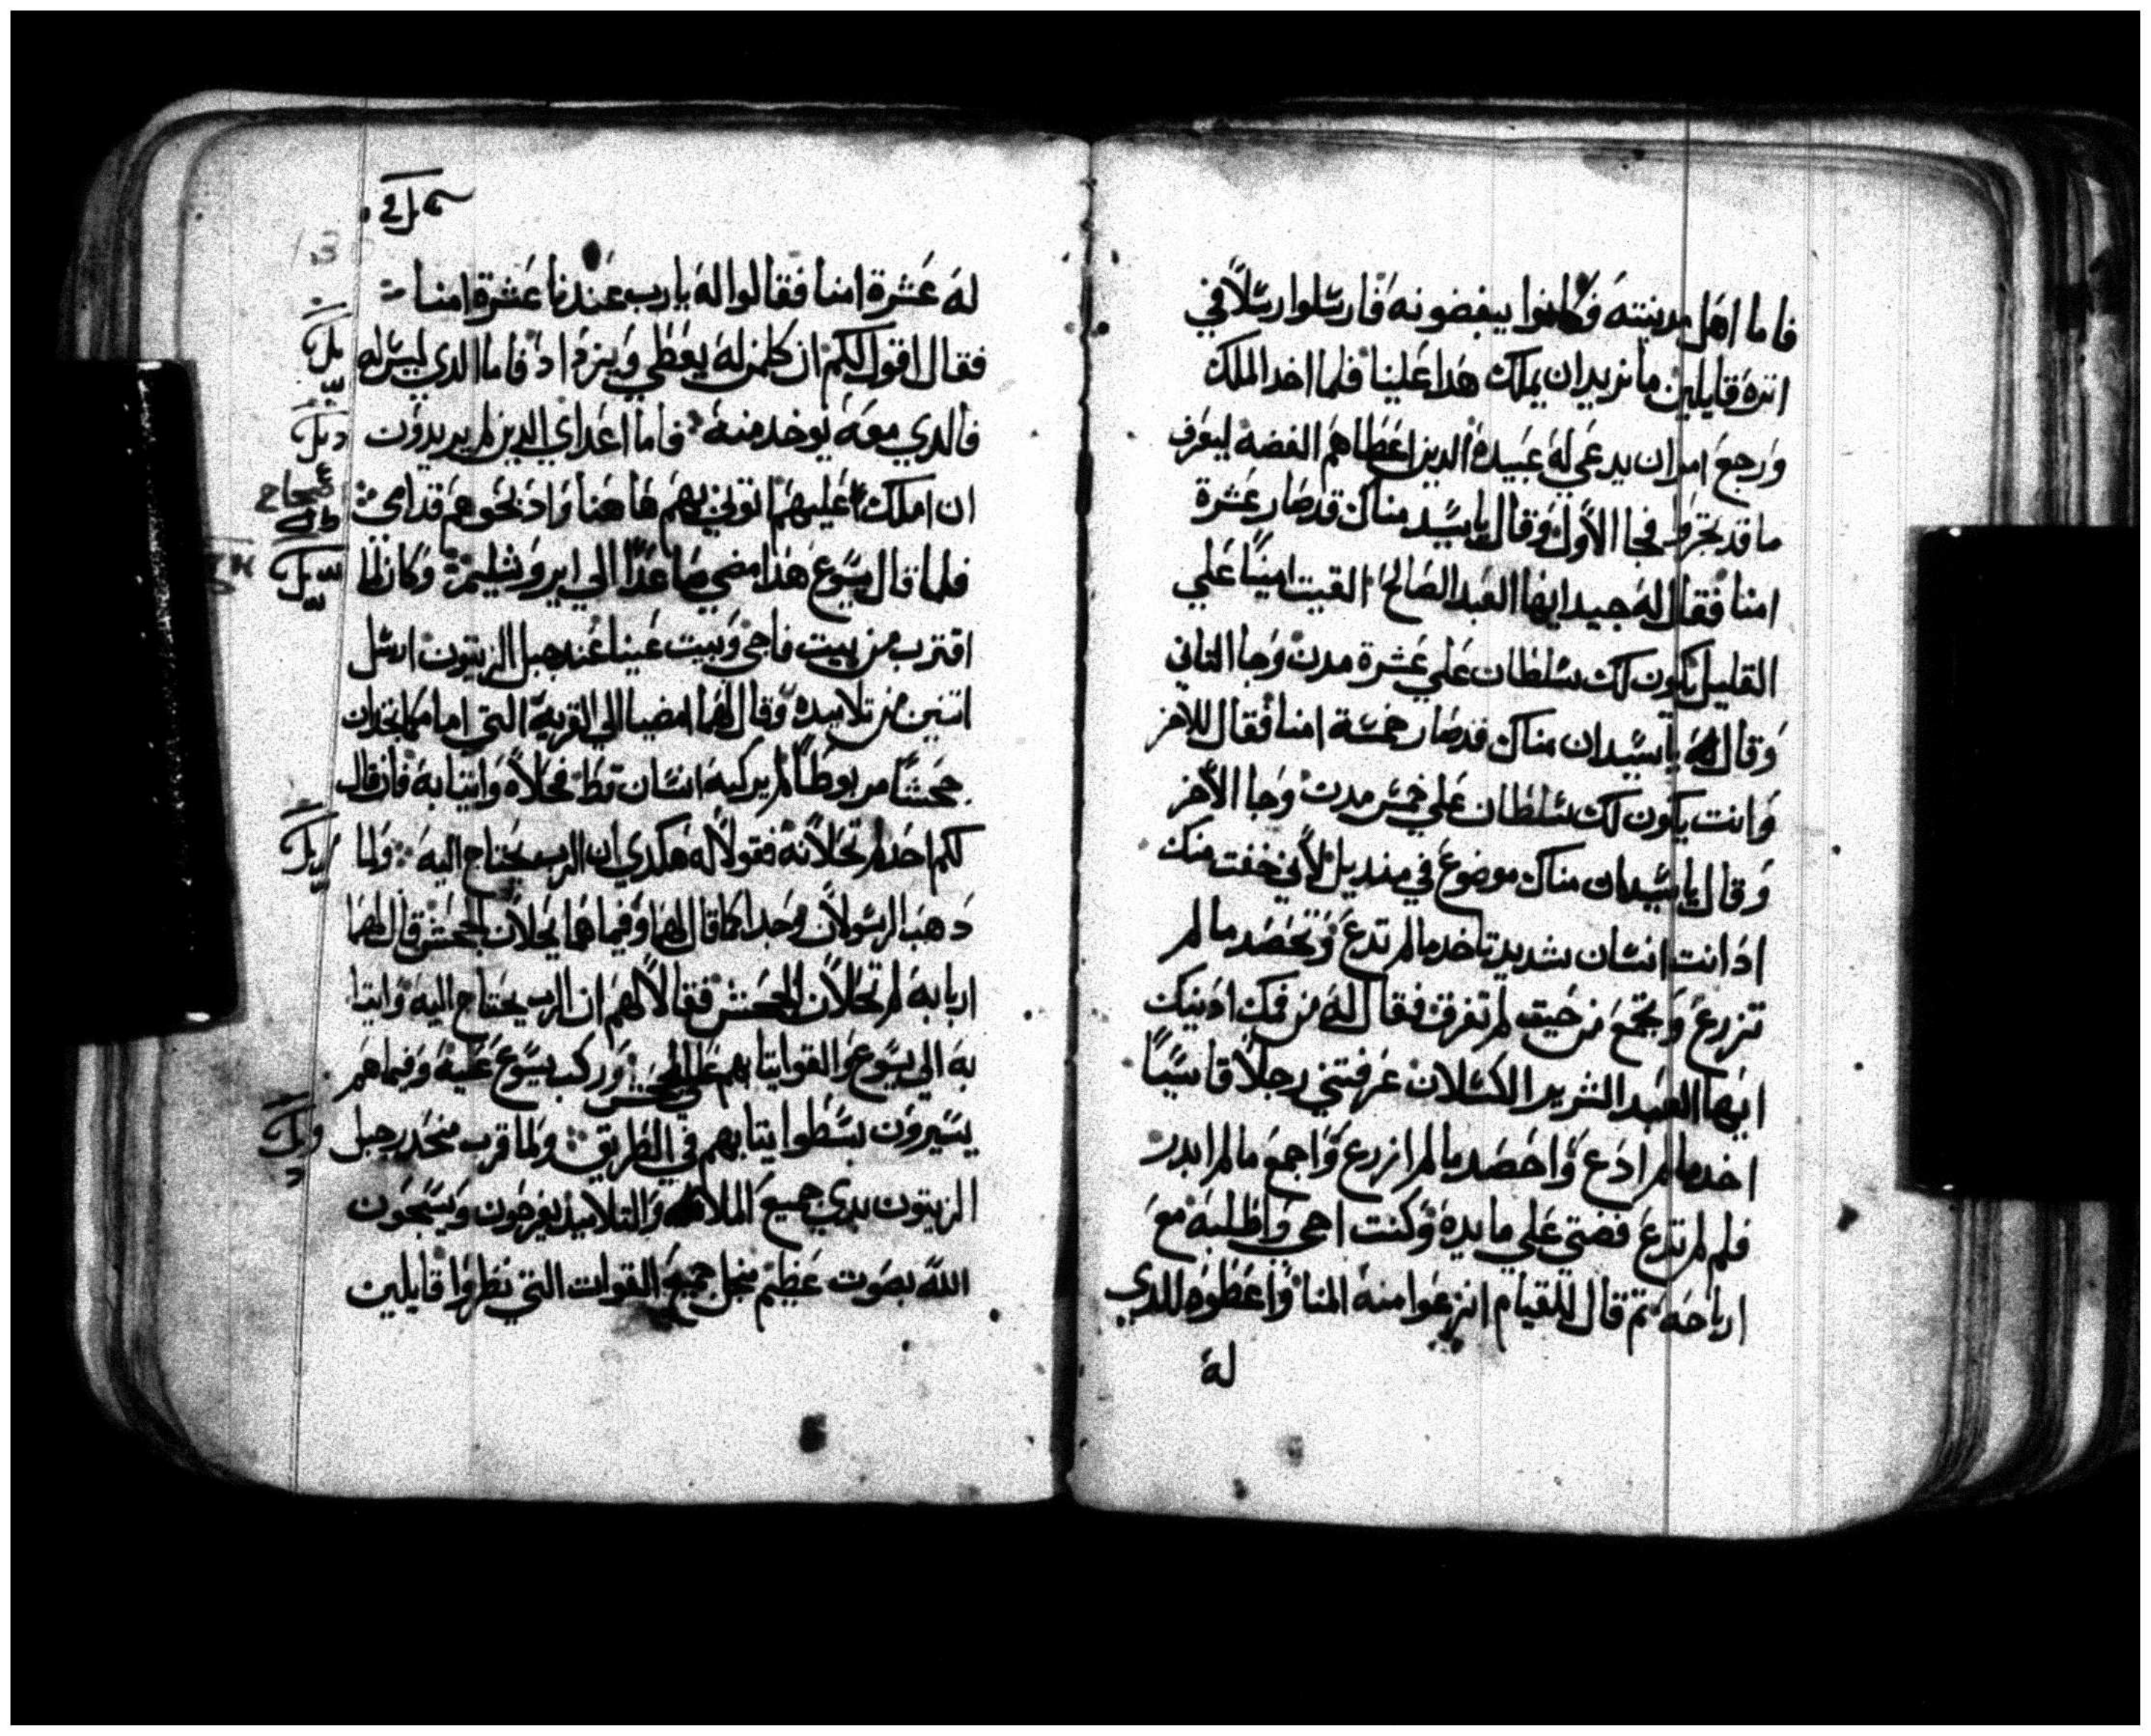 فاما اهل مدينته فكانوا يبغضونه فارسلوا رسلاً في
اثره قايلين ما نريد ان يملك هدا علينا فلما اخد الملك
ورجع امر ان يدعي له عبيده الدين اعطاهم الفضه ليعرف
ما قد تجروا فجا الاول وقال يا سيد مناك قد صار عشرة
امنا فقال له جيد ايها العبد الصالح القيت امينًا علي
القليل يكون لك سلطان علي عشرة مدن وجا التاني
وقال له يا سيد ان مناك قد صار خمسة امنا فقال للاخر
وانت يكون لك سلطان علي خمس مدن وجا الاخر
وقال يا سيد ان مناك موضوع في منديل لاني خفت منك
اد انت انسان شديد تاخد ما لم تدع وتحصد ما لم
تزرع وتجمع من حيت لم تفرق فقال له من فمك ادينك
ايها العبد الشرير الكسلان عرفتني رجلاً قاسيًا
اخد ما لم ادع واحصد ما لم ازرع واجمع ما لم ابدر
فلم لم تدع فضتي علي مايده وكنت اجي واطلبه مع
ارباحه تم قال للقيام انزعوا منه المنا واعطوه للدي
له
له عشرة امنا فقالوا له يا رب عندنا عشرة امنا
فقال اقول لكم ان كلمن له يعطي ويزد اد فاما الدي ليس له
فالدي معه يوخد منه فاما اعداي الدين لم يريدون
ان املك عليهم اتوني بهم هاهنا وادبحوهم قدامي
فلما قال يسوع هذا مضي صاعدًا الي ايروشليم وكان لما
اقترب من بيت فاجي وبيت عينا عند جبل الزيتون ارسل
اتنين من تلاميده وقال لهما امضيا الي القريه التي امامكما تجدان
جحشًا مربوطًا لم يركبه انسان قط فحلاه واتيا به فان قال
لكم احد لم تحلانه فقولا له هكدي ان الرب يحتاج اليه ولما
دهبا الرسولان وجدا كما قال لهما وفيما هما يحلان الجحش قال لهما
اربابه لم تحلان الجحش فقالا لهم ان الرب يحتاج اليه واتيا
به الي يسوع والقوا تيابهم علي الجحش وركب يسوع عليه وفيما هم
يسيرون بسطوا تيابهم في الطريق ولما قرب منحدر جبل
الزيتون بدي جميع الملا والتلاميد يفرحون ويسبحون
الله بصوت عظيم منجل جميع القوات التي نظروا قايلين